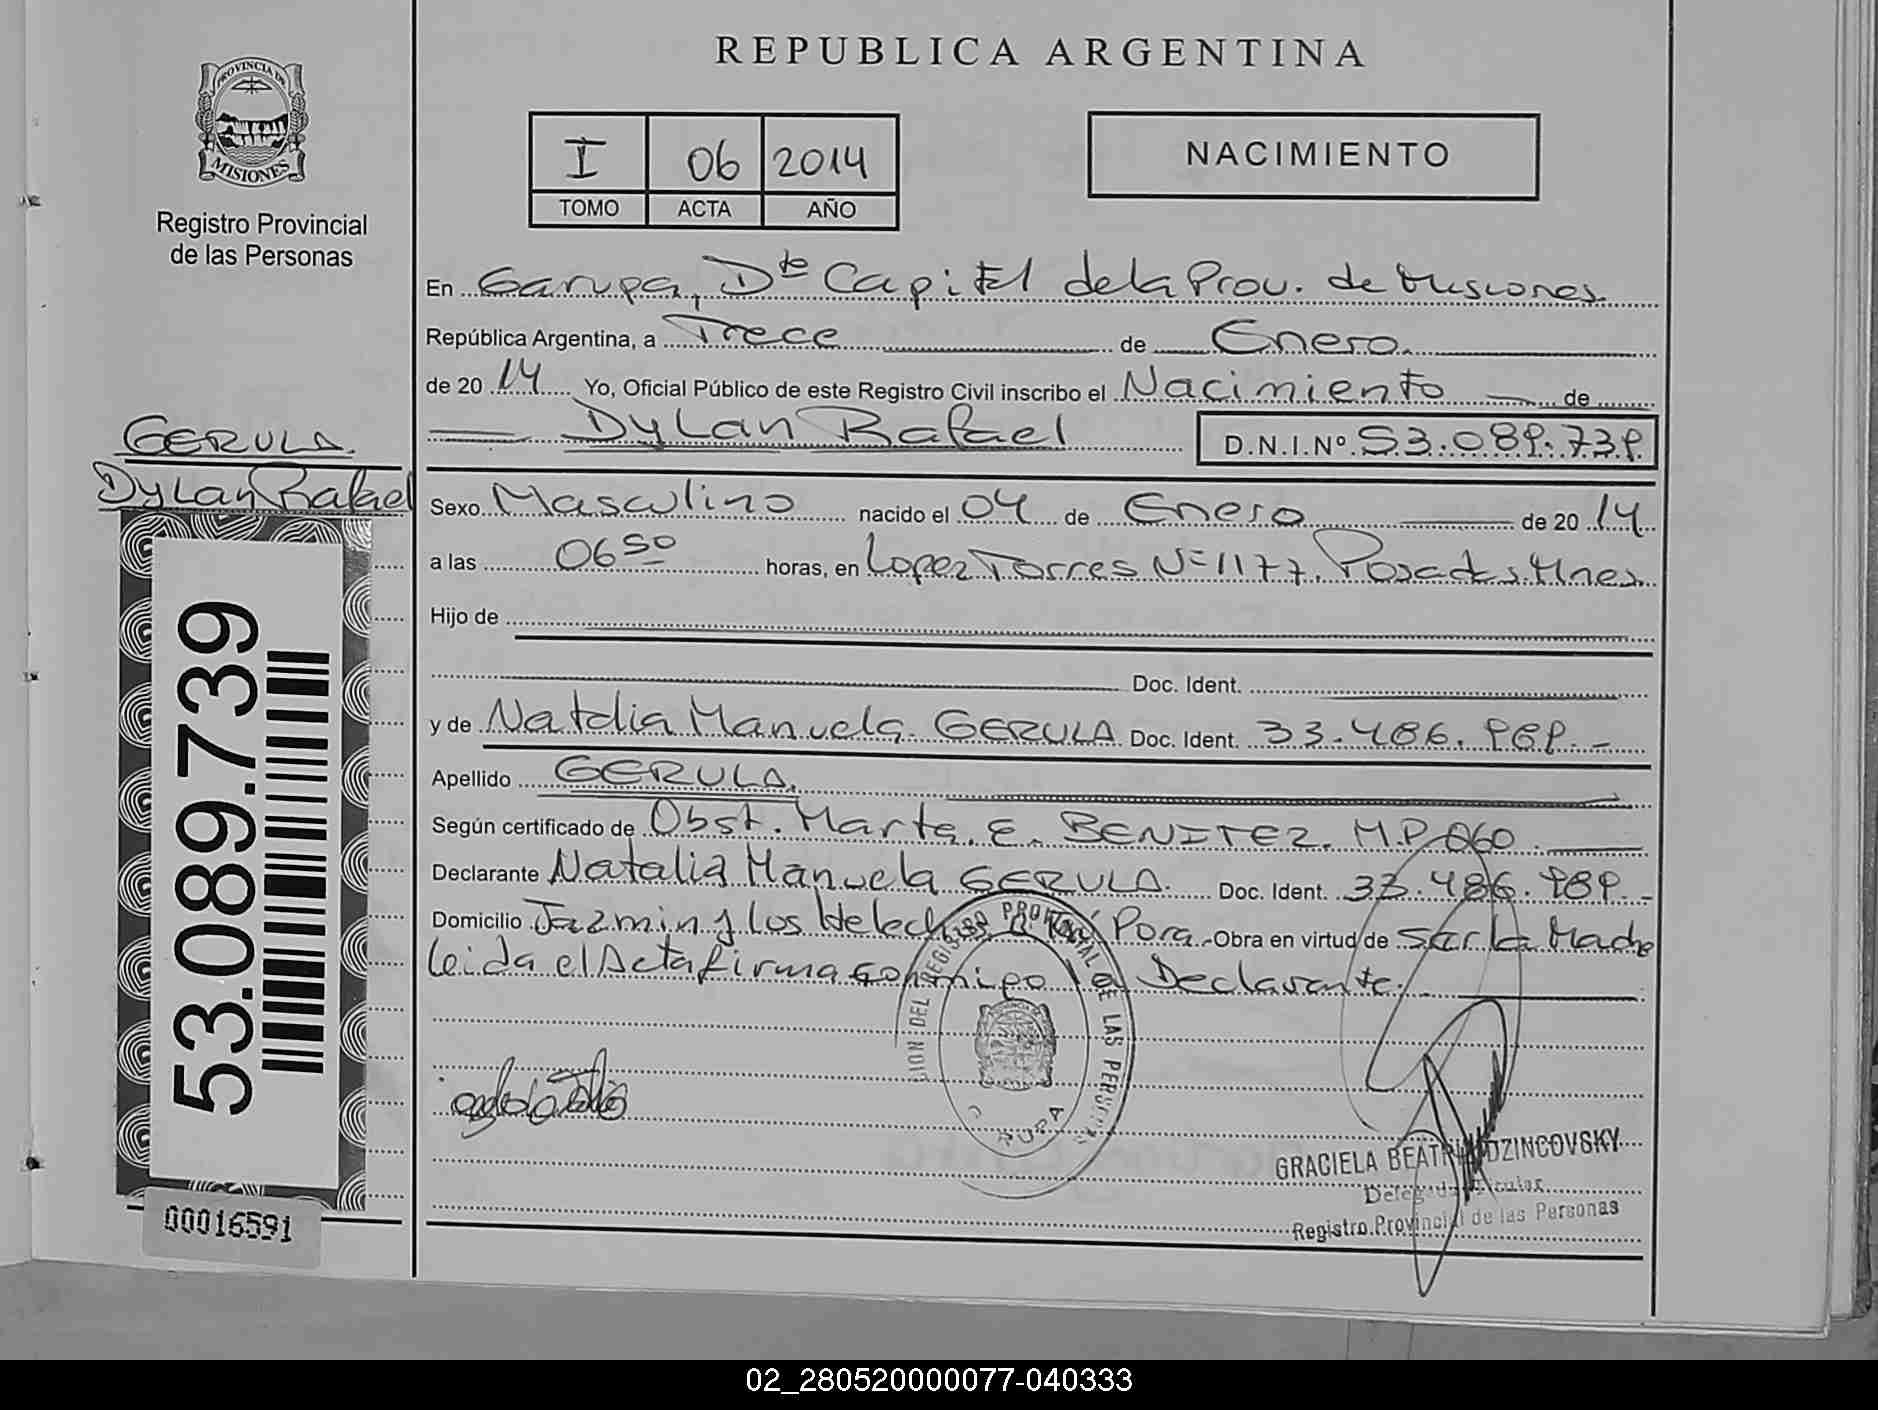 REPUBLICA ARGENTINA
PROVINCIA DE
MISIONES
Registro Provincial
de las Personas
I 06 2014
TOMO ACTA AÑO
NACIMIENTO
En Garupa, Dte Capital de la Prov. de Misiones
República Argentina, a Trece de Enero
de 20 14 Yo, Oficial Público de este Registro Civil inscribo el Nacimiento de
Dylan Rafael D.N.I.Nº 53.089.739
GERULA
Dylan Rafael
Sexo Masculino nacido el 04 de Enero de 20 14
a las 06 50 horas, en Lopez Torres Nº 1177. Posadas. Mnes.
Hijo de
Doc. Ident.
y de Natalia Manuela GERULA Doc. Ident. 33.486.989.-
Apellido GERULA.
Según certificado de Obst. Marta E. BENITEZ. M.P 060
Declarante Natalia Manuela GERULA. Doc. Ident. 33.486.989.-
Domicilio Jazmin y los Helechos B° Porá.- Obra en virtud de ser la Madre
Leida el Acta firma conmigo la Declarante.
53.089.739
00016591
DEL REGISTRO PROVINCIAL DE LAS PERSONAS
GRACIELA BEATRIZ DZINCOVSKY
Delegada Titular
Registro Provincial de las Personas
02_280520000077-040333